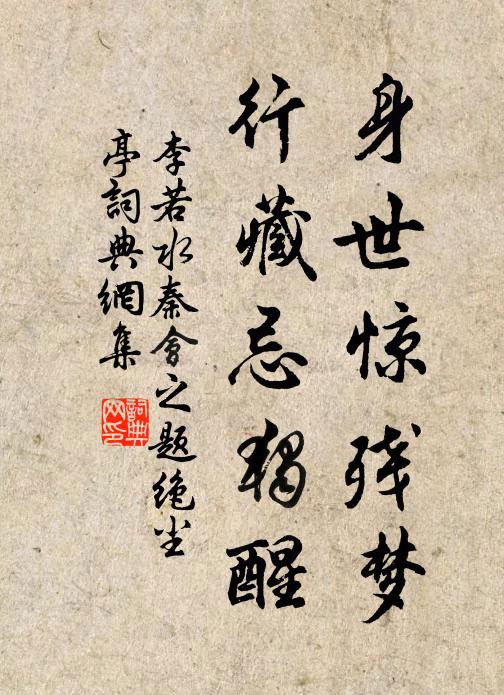 身世惊残梦
行藏忌独醒
李若水秦会之题绝尘
亭詞典網集
詞典网印